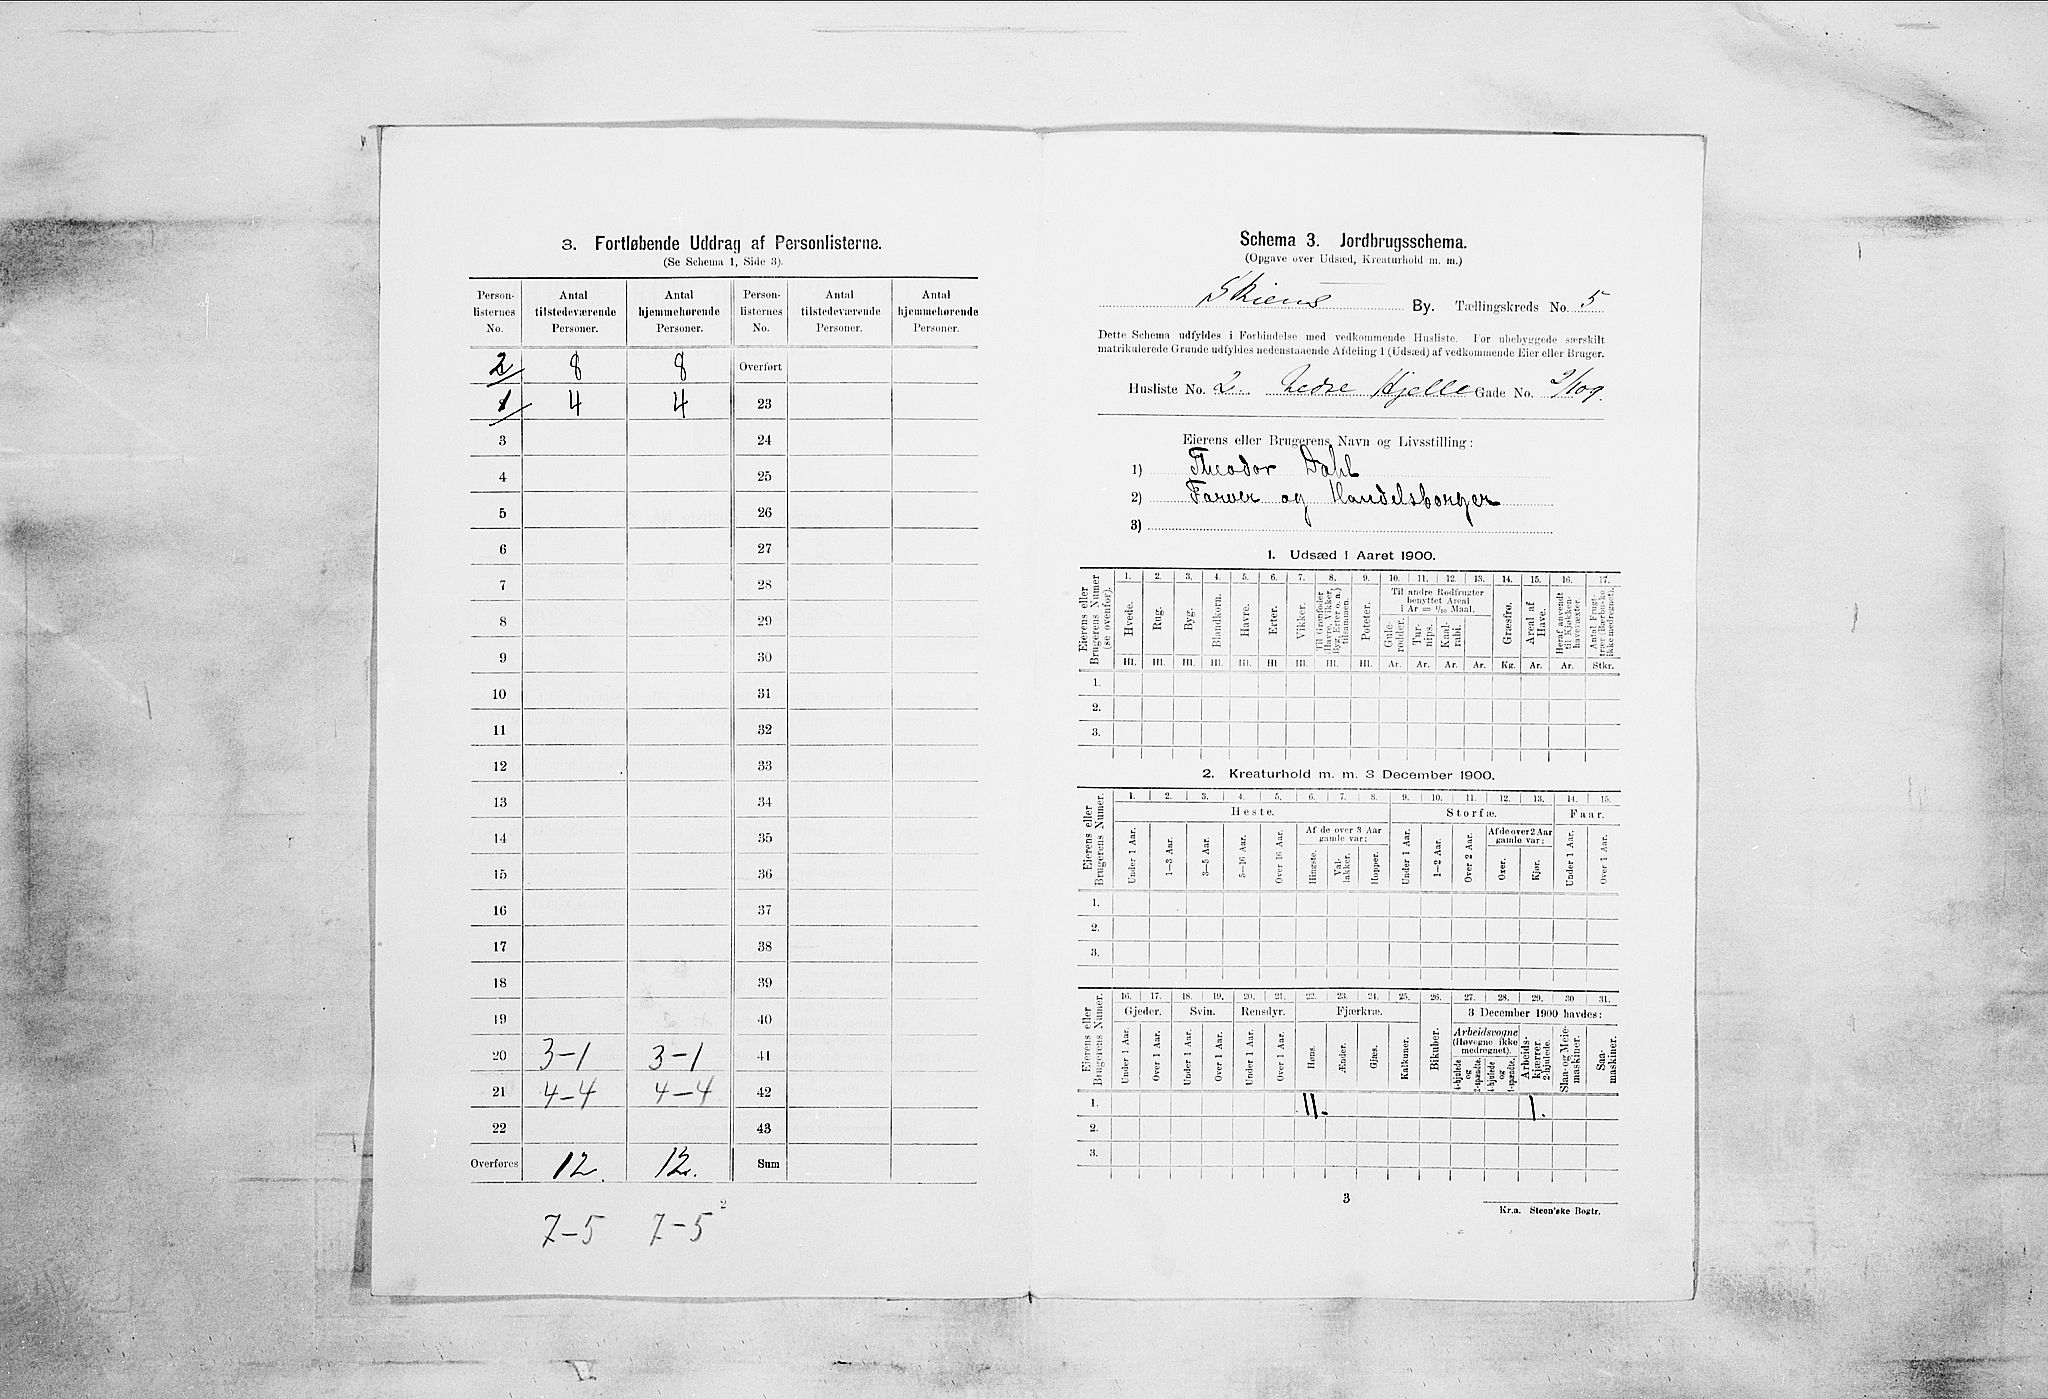 3. Fortløbende Uddrag af Personlisterne.
(Se Schema 1, Side 3).
Person-listernes No. | Antal tilstedeværende Personer. | Antal hjemmehørende Personer. | Person-listernes No. | Antal tilstedeværende Personer. | Antal hjemmehørende Personer.
2/ 8 8 Overført
1/ 4 4 23
3 24
4 25
5 26
6 27
7 28
8 29
9 30
10 31
11 32
12 33
13 34
14 35
15 36
16 37
17 38
18 39
19 40
20 3-1 3-1 41
21 4-4 4-4 42
22 43
Overføres 12. 12. Sum
7-5 7-5
2
Schema 3. Jordbrugsschema.
(Opgave over Udsæd, Kreaturhold m. m.)
Skiens By. Tællingskreds No. 5
Dette Schema udfyldes i Forbindelse med vedkommende Husliste. For ubebyggede særskilt
matrikulerede Grunde udfyldes nedenstaaende Afdeling 1 (Udsæd) af vedkommende Eier eller Bruger.
Husliste No. 2. Nedre Hjelle Gade No. 2/109.
Eierens eller Brugerens Navn og Livsstilling:
1) Theodor Dahl
2) Farver og Handelsborger
3)
1. Udsæd i Aaret 1900.
Eierens eller Brugerens Numer (se ovenfor).
1. 2. 3. 4. 5. 6. 7. 8. 9. 10. 11. 12. 13. 14. 15. 16. 17.
Hvede. Rug. Byg. Blandkorn. Havre. Erter. Vikker. Til Grønfoder (Havre, Vikker, Byg, Erter o. a.) tilsammen. Poteter. Til andre Rodfrugter benyttet Areal i Ar = 1/10 Maal. Gule-rødder. Tur-nips. Kaal-rabi. Græsfrø. Areal af Have. Heraf anvendt til Kjøkken-havevæxter. Antal Frugt-trær (Bærbuske ikke medregnet).
Hl. Hl. Hl. Hl. Hl. Hl Hl. Hl. Hl. Ar. Ar. Ar. Ar. Kg. Ar. Ar. Stkr.
1.
2.
3.
2. Kreaturhold m. m. 3 December 1900.
Eierens eller Brugerens Numer.
1. 2. 3. 4. 5. 6. 7. 8. 9. 10. 11. 12. 13. 14. 15.
Heste. Storfæ. Faar.
Under 1 Aar. 1—3 Aar. 3—5 Aar. 5—16 Aar. Over 16 Aar. Af de over 3 Aar gamle var: Hingste. Val-lakker. Hopper. Under 1 Aar. 1—2 Aar. Over 2 Aar. Af de over 2 Aar gamle var: Oxer. Kjør. Under 1 Aar. Over 1 Aar.
1.
2.
3.
Eierens eller Brugerens Numer.
16. 17. 18. 19. 20. 21. 22. 23. 24. 25. 26. 27. 28. 29. 30 31.
Gjeder. Svin. Rensdyr. Fjærkræ. Bikuber. 3 December 1900 havdes:
Under 1 Aar. Over 1 Aar. Under 1 Aar. Over 1 Aar. Under 1 Aar. Over 1 Aar. Høns. Ænder. Gjæs. Kalkuner. Arbeidsvogne (Høvogne ikke medregnet). 4-hjulede og 2-spændte. 4-hjulede og 1-spændte. Arbeids-kjærrer. 2-hjulede. Slaa- og Meie-maskiner. Saa-maskiner.
1. 11. 1.
2.
3.
3
Kr.a. Steen'ske Bogtr.